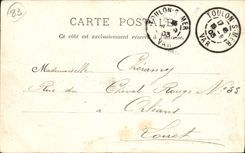 83
CARTE POSTALE
Ce côté est exclusivement réservé
TOULON-S-MER
VAR
TOULON-S-MER
VAR
Mademoiselle Chéramy
Rue du Cheval Rouge N° 35
Orléans
Loiret